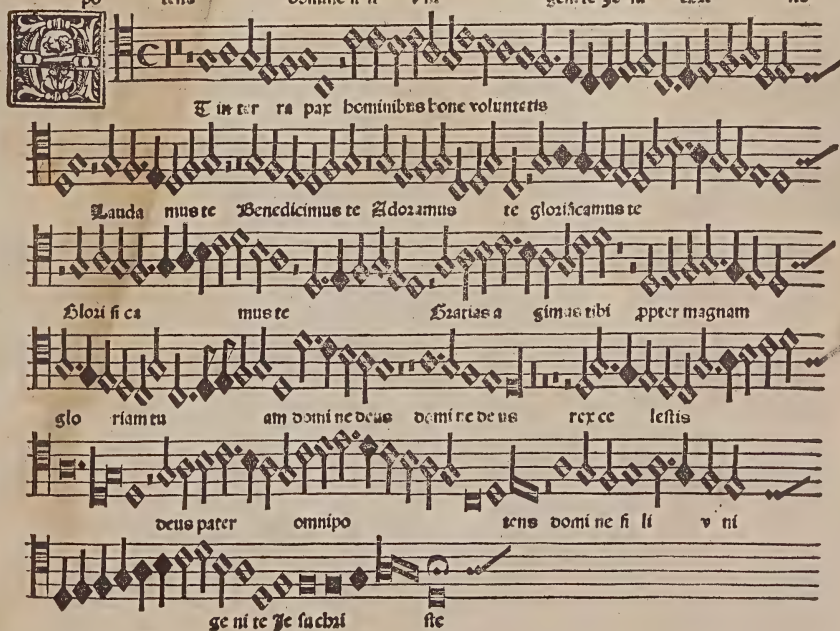 po tens domine fi li vni geni te Je su
ET in ter ra pax hominibus bone voluntatis
Lauda mus te Benedicimus te Adoramus te glorificamus te
Glori fi ca mus te Gratias a gimus tibi ꝓpter magnam
glo riam tu am domi ne deus domi ne de us rex ce lestis
deus pater omnipo tens domi ne fi li v ni
ge ni te Je su chri ste